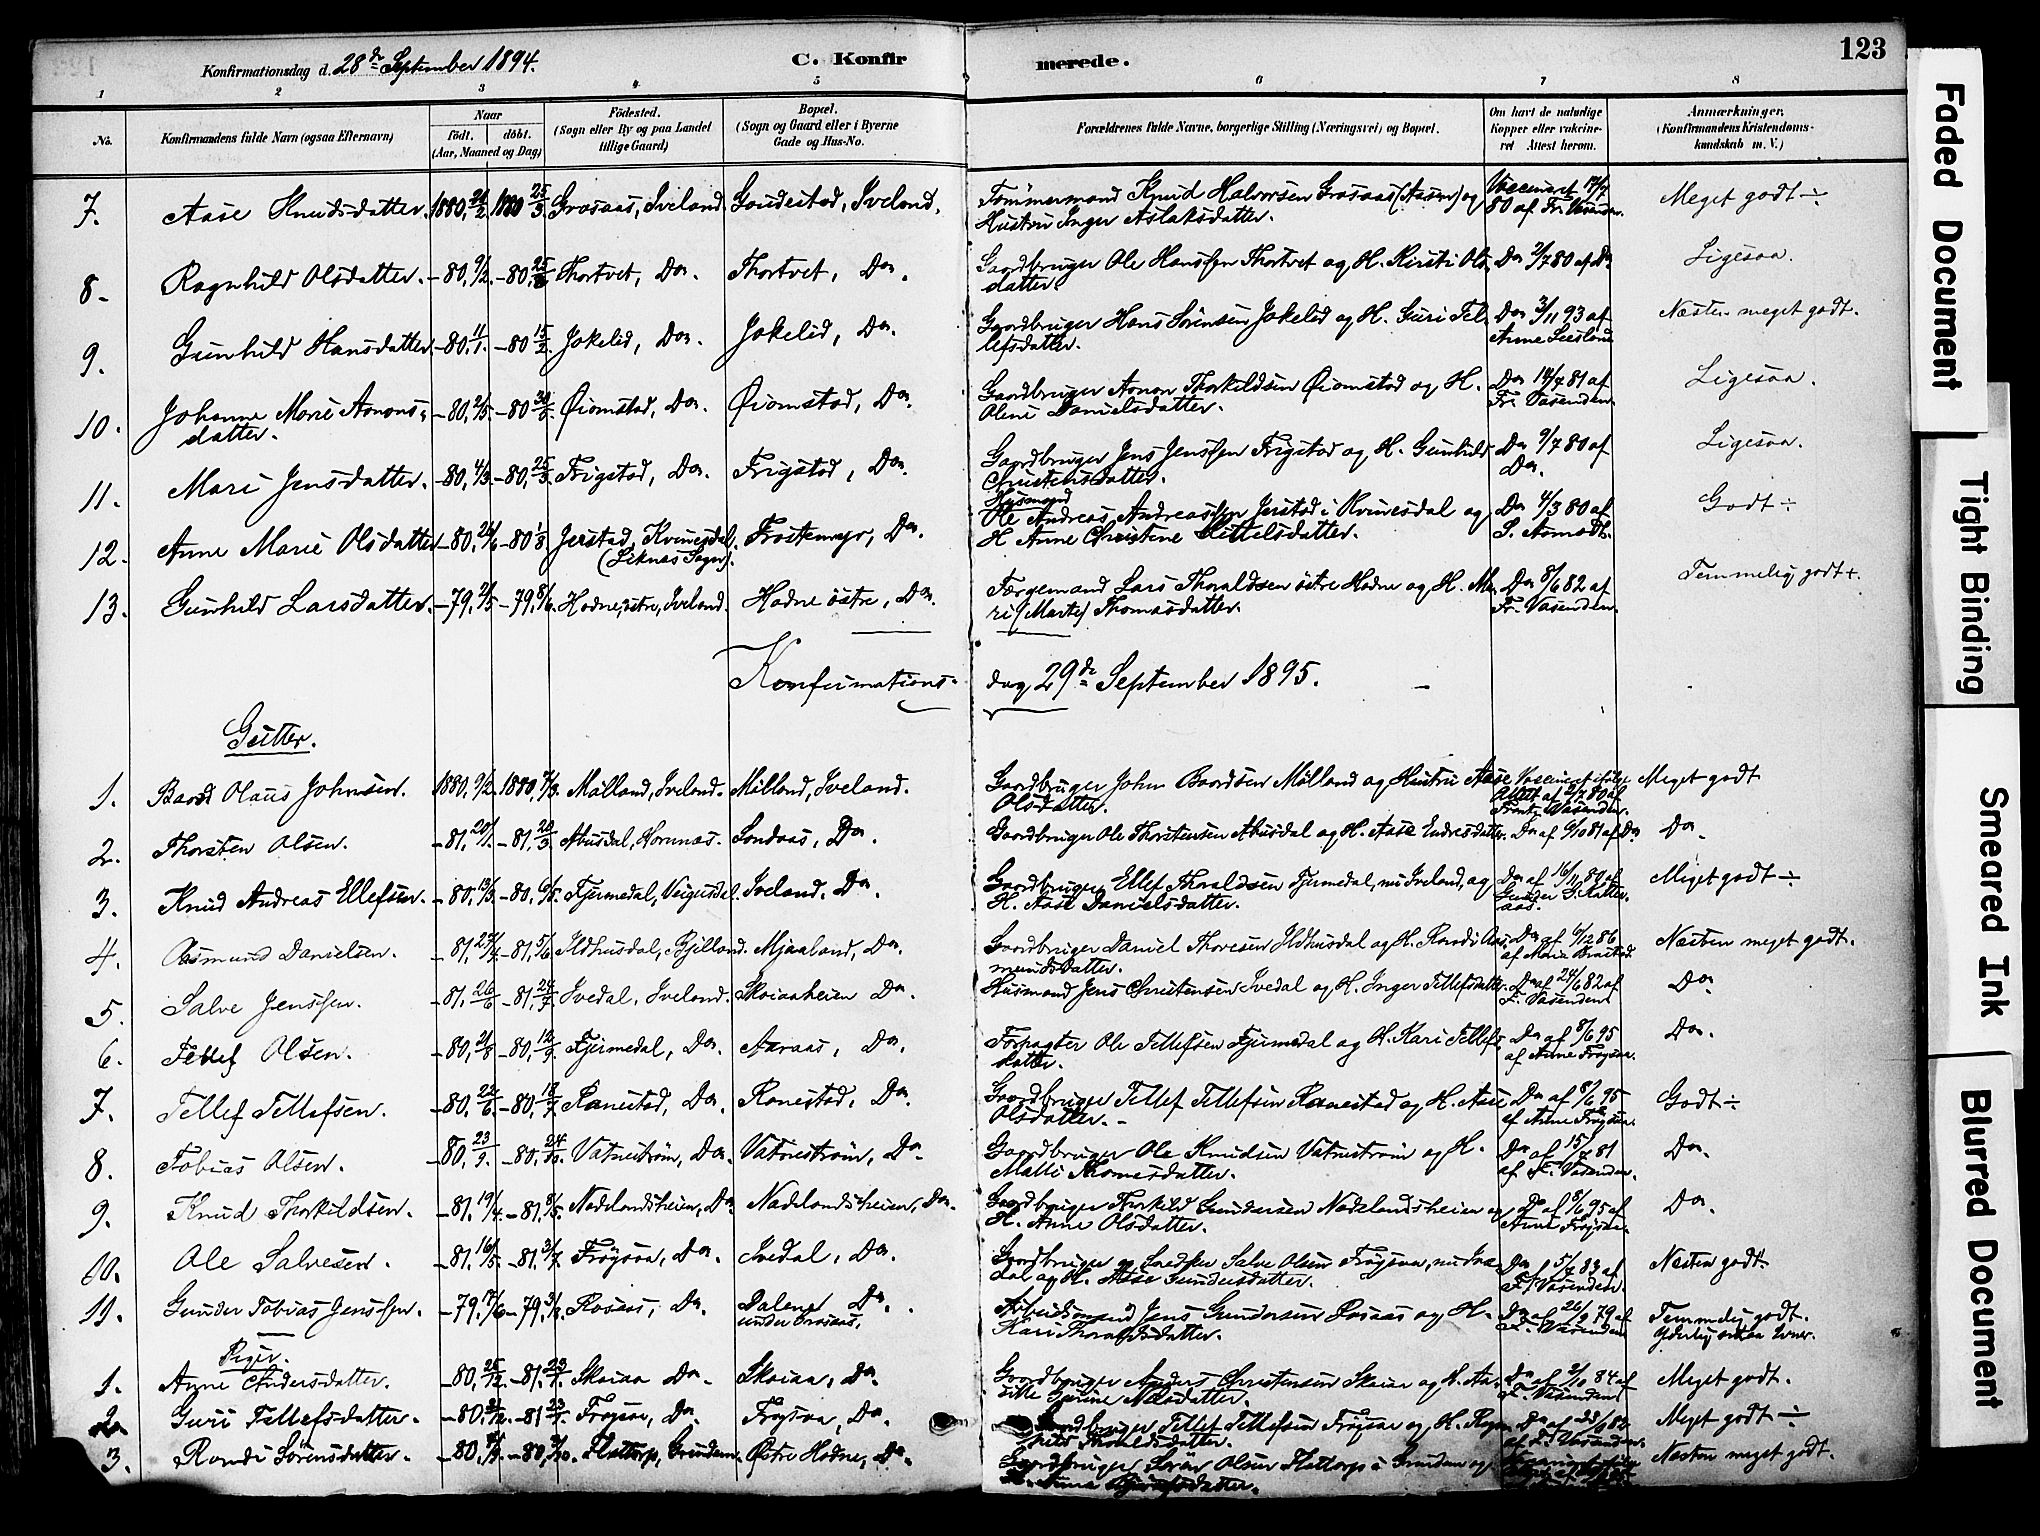 Konfirmationsdag d. 28de September 1894.
C. Konfir
merede.
123
1 2 3 4 5 6 7 8
No.
Konfirmandens fulde Navn (ogsaa Efternavn)
Naar
født. døbt.
(Aar, Maaned og Dag)
Fødested.
(Sogn eller By og paa Landet
tillige Gaard)
Bopæl.
(Sogn og Gaard eller i Byerne
Gade og Hus-No.
Forældrenes fulde Navne, borgerlige Stilling (Næringsvei) og Bopæl.
Om havt de naturlige
Kopper eller vakcine-
ret Attest herom.
Anmærkninger.
(Konfirmandens Kristendoms-
kundskab m. V.)
7. Aase Knudsdatter. 1880, 21/2. 1880 25/3. Grosaas, Iveland. Goudestad, Iveland. Tømmermand Knud Halvorsen Grosaas (Aasen) og Vaccineret 17/7 Meget godt ÷
Hustru Inger Aslaksdatter. 80 af Fr. Vasenden.
8. Ragnhild Olsdatter. -80, 9/2. -80, 25/3. Thortvet, Do. Thortvet, Do. Gaardbruger Ole Hanssen Thortvet og H. Kirsti Ols- Do 2/7 80 af Do Ligesaa.
datter.
9. Gunhild Hansdatter. -80, 11/1. -80 15/2. Jokelid, Do. Jokelid, Do. Gaardbruger Hans Sørensen Jokelid og H. Guri Tel- Do 3/11 93 af Næsten meget godt.
lefsdatter. Anne Liesland
10. Johanne Marie Aanons- -80, 2/5. -80 Øiomstad, Do. Øiomstad, Do. Gaardbruger Aanon Thorkildsen Øiomstad og H. Do 14/7 81 af Ligesaa.
datter. Olene Danielsdatter. Fr. Vasenden.
11. Mari Jensdatter. -80, 4/3. -80, 25/3. Frigstad, Do. Frigstad, Do. Gaardbruger Jens Jenssen Frigstad og H. Gunhild Do 9/7 80 af Ligesaa.
Christensdatter. Do.
12. Anne Marie Olsdatter -80, 26/6 -80 1/8 Jerstad, Kvinesdal. Frostemyr, Do. Husmand
Ole Andreas Andreassen Jerstad i Kvinesdal og Do 4/3 80 af Godt ÷
(Liknæs Sogn). H Anne Christine Kittelsdatter. S. Aamodt.
13. Gunhild Larsdatter. -79, 2/5 -79, 8/6. Hodne, østre, Iveland. Hodne østre, Do. Færgemand Lars Thoraldsen østre Hodne og H. Ma- Do 8/6 82 af Temmelig godt +.
ri (Marte) Thomasdatter. Fr. Vasenden.
Konfirmations-
dag 29de September 1895.
Gutter.
1. Baard Olaus Johnsen. 1880, 9/2. 1880, 7/3. Mölland, Iveland. Mölland, Iveland. Gaardbruger John Baardsen Mölland og Hustru Aase Vaccineret ifølge Meget godt
Olsdatter. Attest af 2/7 80 af
Frantz Vasenden.
2. Thorsten Olsen. -81, 20/1. -81, 20/3 Abusdal, Hornnæs. Sondaas, Do. Gaardbruger Ole Thorstensen Abusdal og H. Aase Endresdatter. Do af 9/10 81 af Do Do.
3. Knud Andreas Ellefsen. -80, 13/3. -80, 9/5. Fjermedal, Veigusdal. Iveland, Do. Gaardbruger Ellef Thoraldsen Fjermedal, nu Iveland, og Do af 16/11 80 af Meget godt ÷
H. Aase Danielsdatter. Gunder S. Katter-
aas.
4. Aasmund Danielsen. -81, 27/4. -81, 5/6. Ildhusdal, Bjelland. Mjaaland, Do. Gaardbruger Daniel Thoresen Ildhusdal og H. Randi Aas- Do af 9/12 86 Næsten meget godt.
mundsdatter. af Maria Braastad.
5. Salve Jenssen. -81, 26/6 -81, 24/7. Ivedal, Iveland. Skaiaaheien Do. Husmand Jens Christensen Ivedal og H. Inger Tellefsdatter. Do af 24/6 82 af Do.
F. Vasenden.
6. Tellef Olsen. -80, 21/8 -80, 12/9. Fjermedal, Do. Aaraas, Do. Forpagter Ole Tellefsen Fjermedal og H. Kari Tellefs- Do af 8/6 95 Do.
datter. af Anne Frøysaa.
7. Tellef Tellefsen. -80, 22/6 -80, 18/7. Ranestad, Do. Ranestad, Do. Gaardbruger Tellef Tellefsen Ranestad og H. Aase Do af 8/6 95 Godt ÷
Olsdatter. af Anne Frøysaa.
8. Tobias Olsen. -80, 23/9. -80, 24/10. Vatnestrøm, Do. Vatnestrøm, Do. Gaardbruger Ole Knudsen Vatnestrøm og H. Do af 15/7 81 Do.
Malli Thomesdatter. af F. Vasenden.
9. Knud Thorkildsen. -81, 19/4. -81, 8/5. Nadelandsheien, Do. Nadelandsheien, Do. Gaardbruger Thorkild Gundersen Nadelandsheien og Do af 8/6 95 af Do.
H. Anne Olsdatter. Anne Frøysaa.
10. Ole Salvesen. -81, 16/5. -81, 3/7. Frøysaa, Do. Ivedal, Do. Gaardbruger og Snedker Salve Olsen Frøysaa, nu Ive- Do af 5/7 83 af Næsten godt.
dal og H. Aase Gundersdatter. Fr Vasenden.
11. Gunder Tobias Jenssen. -79, 17/6 -79, 3/8. Rosaas, Do. Dalene Do. Arbeidsmand Jens Gundersen Rosaas og H. Do af 26/9 79 af Temmelig godt.
under Grosaas. Kari Thoraldsdatter. F. Vasenden
Piger.
1. Anne Andersdatter. -80, 25/12. -81, 23/1. Skaiaa Do. Skaiaa, Do. Gaardbruger Anders Christensen Skaiaa og H. Do af 2/10 84 af Meget godt.
Nilsdatter. F. Vasenden
2. Guri Tellefsdatter. -80, 21/12. -81 23/1. Frøysaa, Do. Frøysaa, Do. Gaardbruger Tellef Tellefsen Frøysaa og H. Ragn- Do af Meget godt ÷
hild Thoraldsdatter. af F. Vasenden.
3. Randi Sörensdatter. -80, -80, Flottorp, Grindem. Østre Hodne, Do. Gaardbruger Sören Olsen Flottorp i Grindem og Næsten meget godt.
Faded Document
Tight Binding
Smeared Ink
Blurred Document